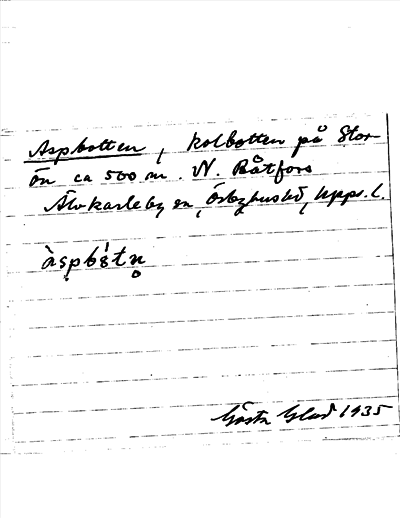 Aspbotten, kolbotten på Stor-
ön ca 500 m. N. Båtfors
Älvkarleby sn, Örbyhus hd, Upps. l.
àspbótn̥
Gösta Glad 1935